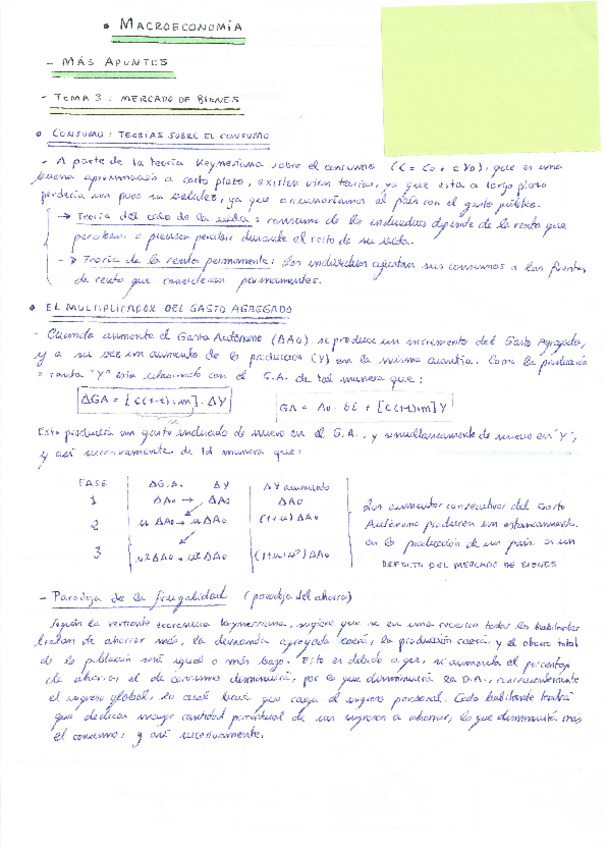 • MACROECONOMÍA
- MÁS APUNTES
- TEMA 3: MERCADO DE BIENES
• CONSUMO: TEORÍAS SOBRE EL CONSUMO
- A parte de la teoría Keynesiana sobre el consumo (C = Co + cYD), que es una
buena aproximación a corto plazo, existen otras teorías, ya que esta a largo plazo
perdería un poco su validez, ya que arruinaríamos al país con el gasto público.
→ Teoría del ciclo de la vida: consumo de los individuos depende de la renta que
perciban o piensan percibir durante el resto de su vida.
→ Teoría de la renta permanente: Los individuos ajustan sus consumos a las fuentes
de renta que consideran permanentes.
• EL MULTIPLICADOR DEL GASTO AGREGADO
- Cuando aumenta el Gasto Autónomo (ΔAo) se produce un incremento del Gasto Agregado,
y a su vez un aumento de la producción (Y) en la misma cuantía. Como la producción
o renta "Y" está relacionada con el G.A. de tal manera que:
ΔGA = [c(1-t)-m] · ΔY GA = Ao - bi + [c(1-t)-m] Y
Esto produciría un gasto inducido de nuevo en el G.A., y simultáneamente de nuevo en "Y",
y así sucesivamente de tal manera que:
FASE ΔG.A. ΔY ΔY acumulado
1 ΔAo → ΔAo ΔAo
2 u ΔAo → u ΔAo (1+u) ΔAo
3 u2 ΔAo → u2 ΔAo (1+u+u²) ΔAo
Los aumentos consecutivos del Gasto
Autónomo producen un estancamiento
en la producción de un país en un
DEPÓSITO DEL MERCADO DE BIENES
- Paradoja de la frugalidad (paradoja del ahorro)
Según la vertiente económica keynesiana, sugiere que si en una recesión todos los habitantes
tratan de ahorrar más, la demanda agregada caerá, la producción caerá y el ahorro total
de la población será igual o más bajo. Esto es debido a que, si aumenta el porcentaje
de ahorro, el de consumo disminuirá, por lo que disminuirá la D.A., consecuentemente
el ingreso global, lo cual hará que caiga el ingreso personal. Cada habitante tendrá
que dedicar mayor cantidad porcentual de sus ingresos a ahorrar, lo que disminuirá más
el consumo, y así sucesivamente.